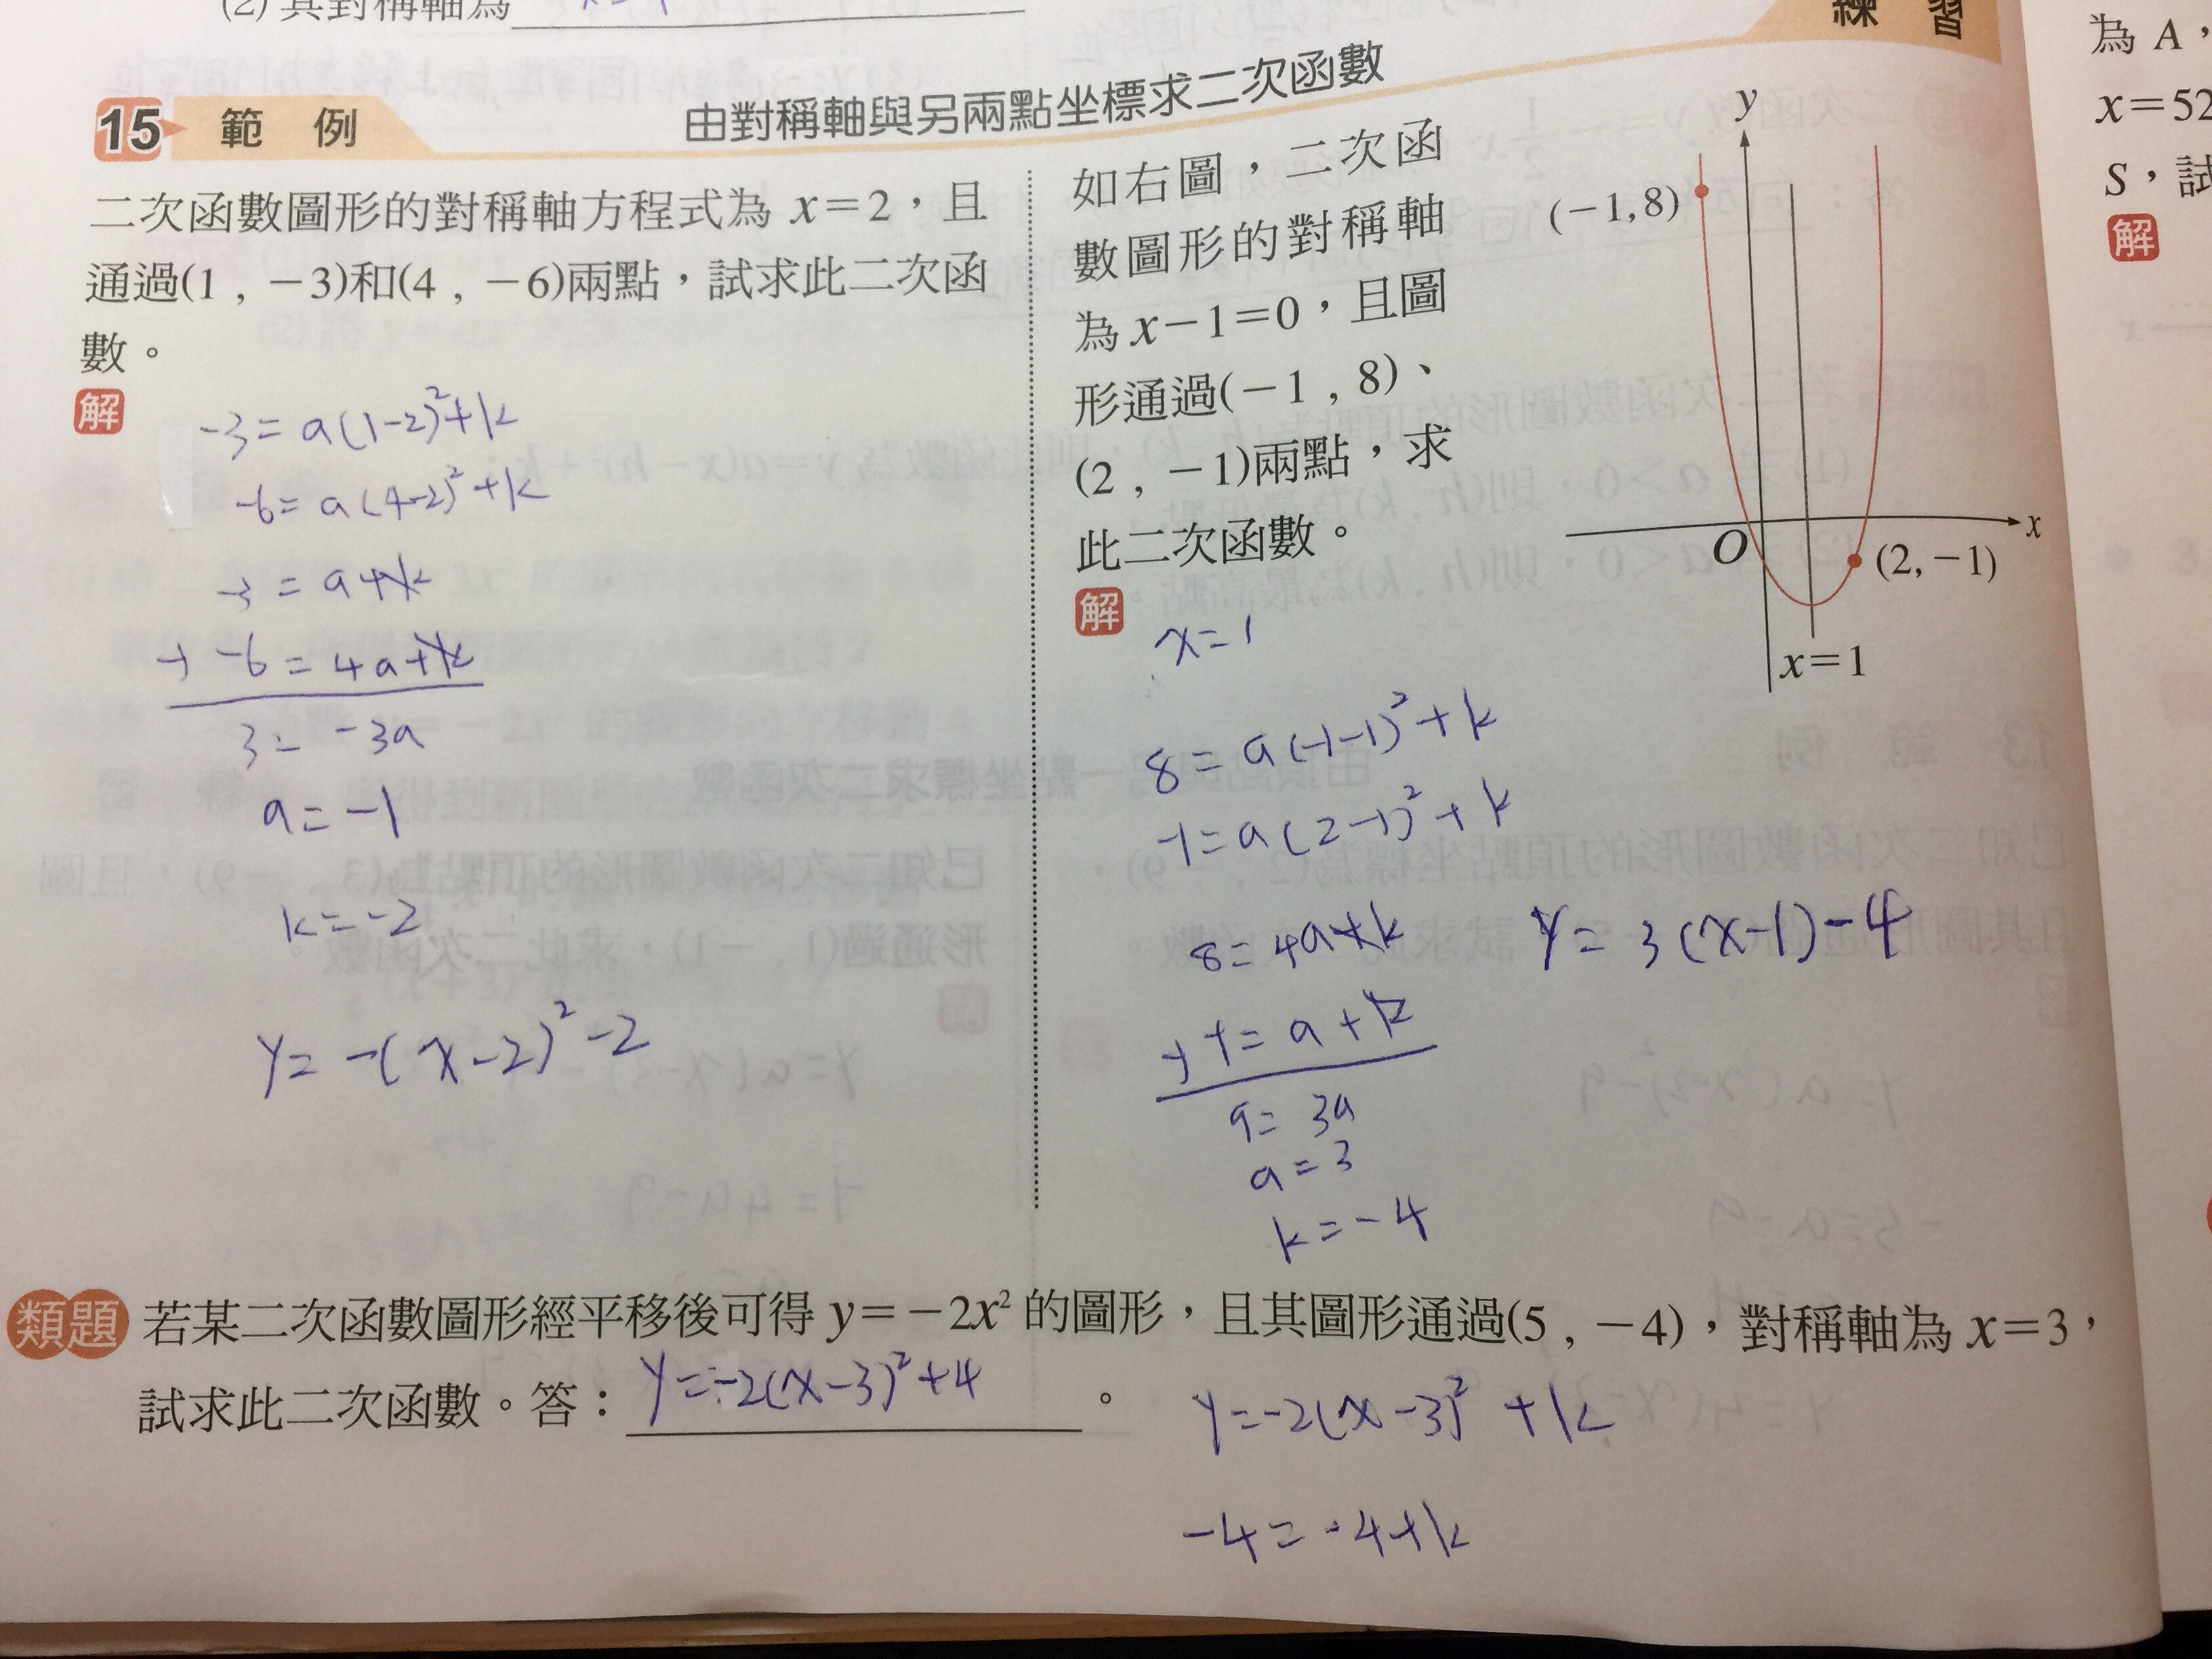 (2) 其對稱軸為
練 習
15 範 例
由對稱軸與另兩點坐標求二次函數
二次函數圖形的對稱軸方程式為 x=2,且
通過(1 , -3)和(4 , -6)兩點,試求此二次函
數。
解
-3 = a(1-2)²+k
-6 = a(4-2)²+k
-3 = a+k
-) -6 = 4a+k
3 = -3a
a = -1
k = -2
y = -(x-2)²-2
如右圖,二次函
數圖形的對稱軸
為 x-1=0,且圖
形通過(-1 , 8)、
(2 , -1)兩點,求
此二次函數。
y
(-1,8)
O
x
(2,-1)
x=1
解
x=1
8 = a(-1-1)²+k
-1 = a(2-1)²+k
8 = 4a+k
-) -1 = a+k
9 = 3a
a = 3
k = -4
y = 3(x-1)-4
類題 若某二次函數圖形經平移後可得 y=-2x² 的圖形,且其圖形通過(5 , -4),對稱軸為 x=3,
試求此二次函數。答: y=-2(x-3)²+4 。
y=-2(x-3)²+k
-4 = -4+k
為 A,
x=52
S,試
解